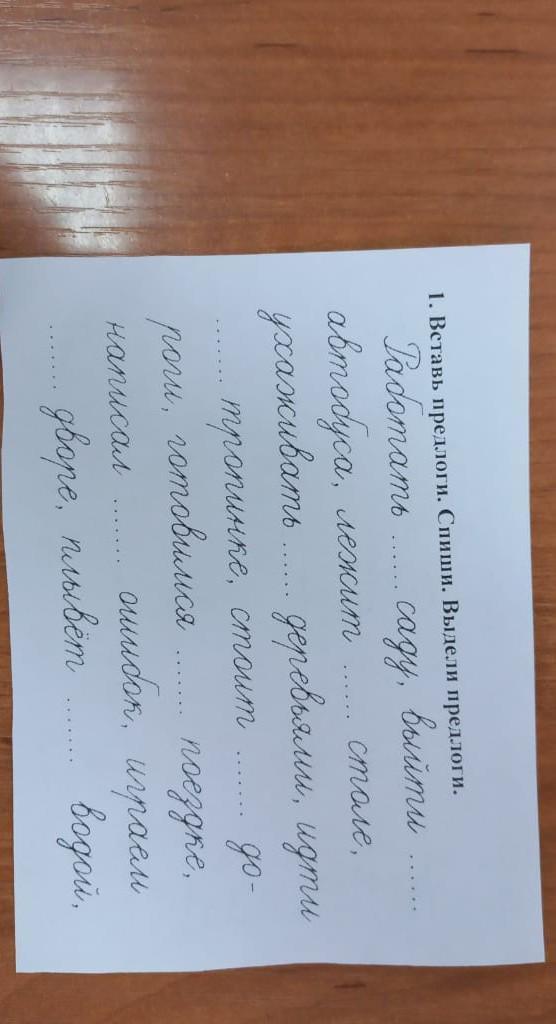 1. Вставь предлоги. Спиши. Выдели предлоги.
Работать ...... саду, выйти ......
автобуса, лежит ...... столе,
ухаживать ...... деревьями, идти
....... тропинке, стоит ........ до-
роги, готовился ....... поездке,
написал ........ ошибок, играем
....... дворе, плывёт ........ водой,